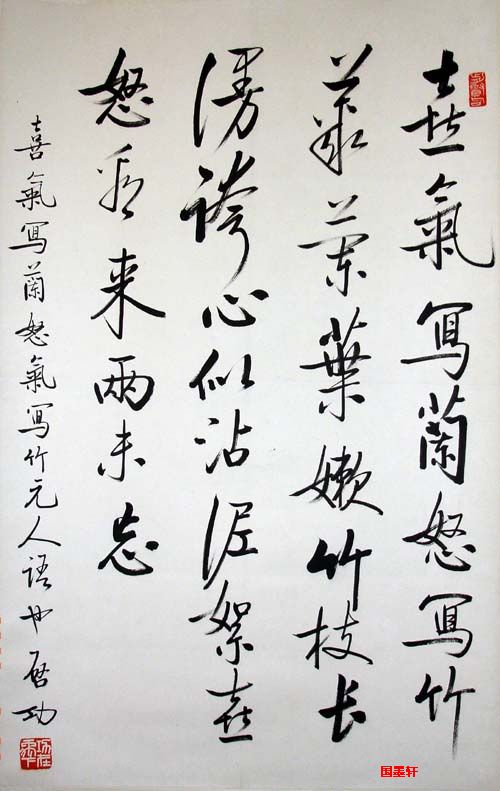 喜氣寫蘭怒寫竹
叢蘭葉嫩竹枝长
漫誇心似沾泥絮喜
怒看来兩未忘
喜氣寫蘭怒氣寫竹元人語也啟功
国墨轩